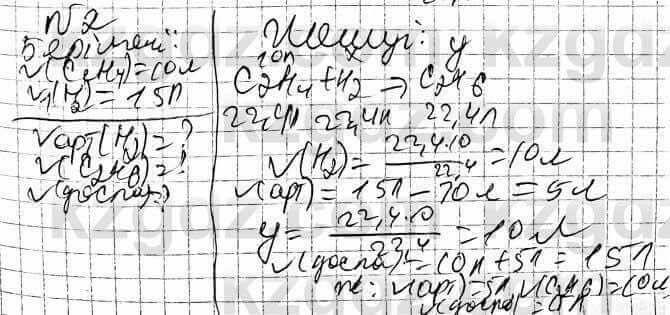 №2
Берілгені:
V(C2H4)=10л
V1(H2)=15л
Vарт(H2)=?
V(C2H6)=?
V(қоспа)?
Шешуі:
10л x y
C2H4 + H2 → C2H6
22,4л 22,4л 22,4л
V(H2) = 22,4·10 / 22,4 = 10л
V(арт) = 15л - 10л = 5л
y = 22,4·10 / 22,4 = 10л
V(қоспа) = 10л + 5л = 15л
Ж: V(арт)=5л, V(C2H6)=10л
V(қоспа)